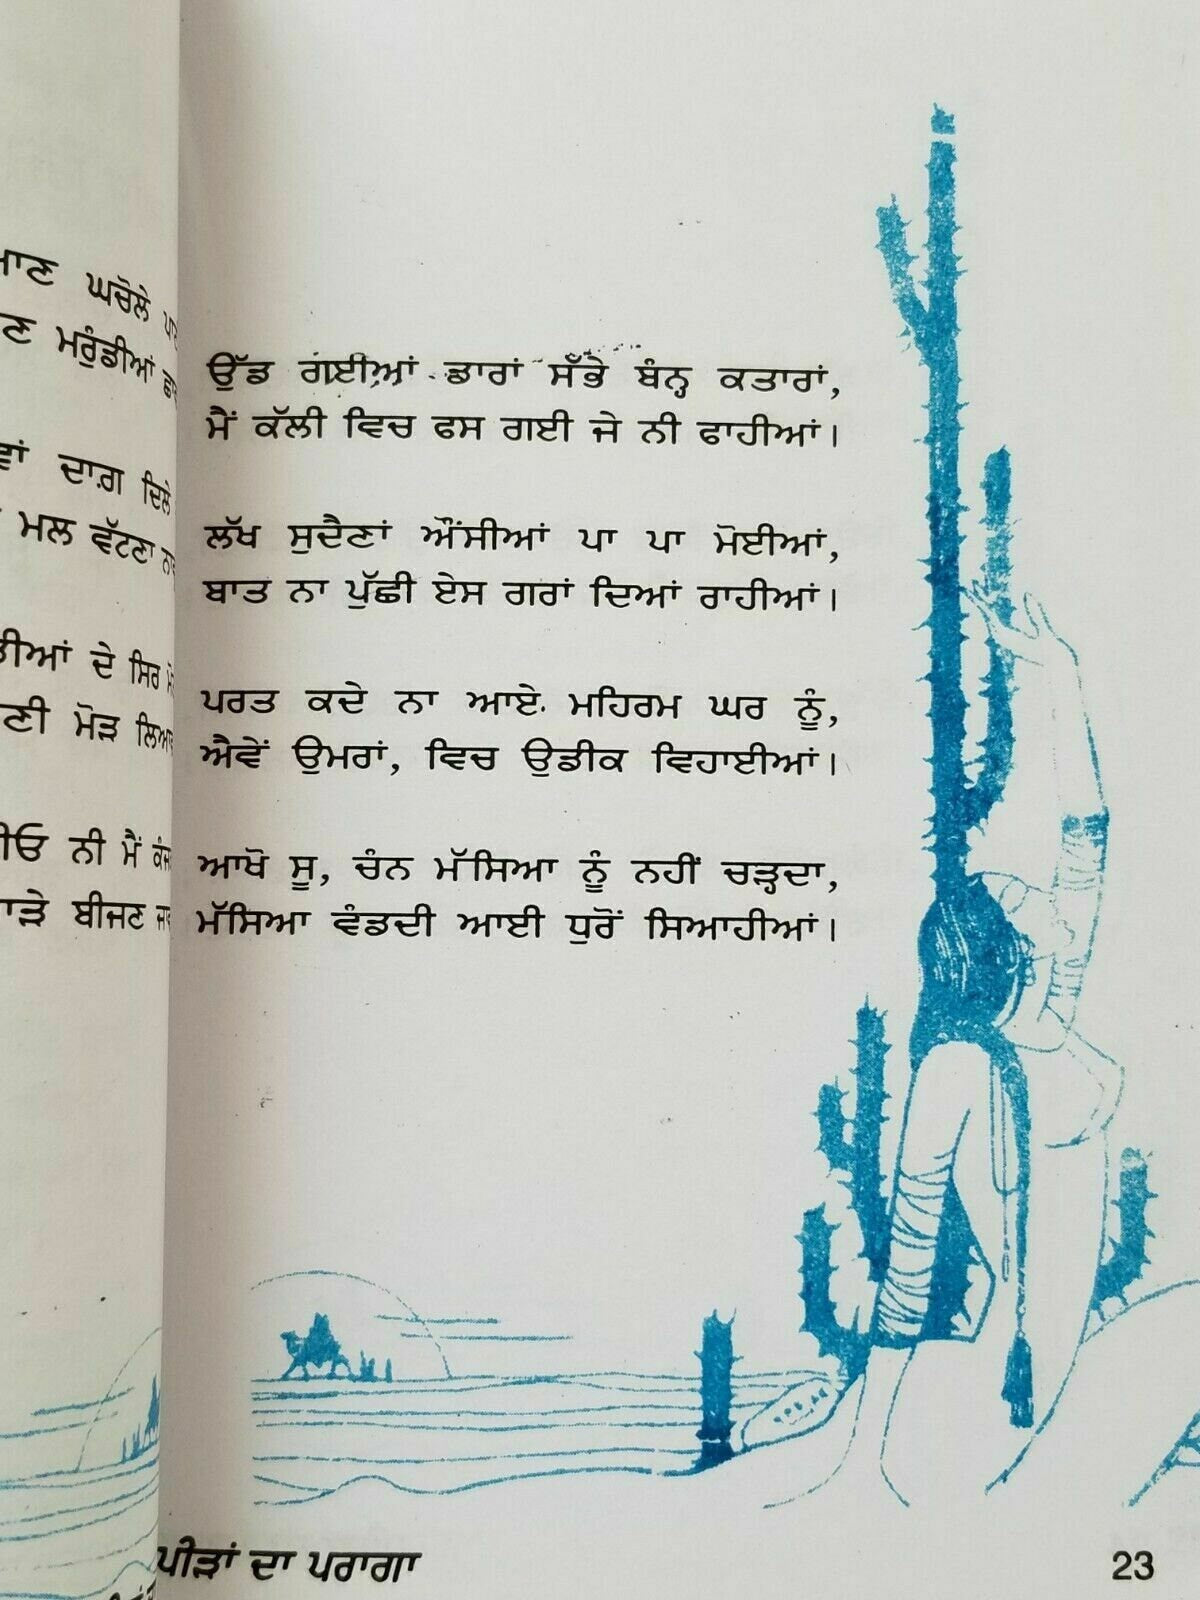 ਘਚੋਲੇ
ਮਰੁੰਡੀਆਂ
ਦਾਗ਼ ਦਿਲੇ
ਮਲ ਵੱਟਣਾ
ਦੇ ਸਿਰ
ਮੋੜ
ਨੀ ਮੈਂ
ਬੀਜਣ
ਉੱਡ ਗਈਆਂ ਡਾਰਾਂ ਸੱਭੇ ਬੰਨ੍ਹ ਕਤਾਰਾਂ,
ਮੈਂ ਕੱਲੀ ਵਿਚ ਫਸ ਗਈ ਜੇ ਨੀ ਫਾਹੀਆਂ।
ਲੱਖ ਸੁਦੈਣਾਂ ਔਂਸੀਆਂ ਪਾ ਪਾ ਮੋਈਆਂ,
ਬਾਤ ਨਾ ਪੁੱਛੀ ਏਸ ਗਰਾਂ ਦਿਆਂ ਰਾਹੀਆਂ।
ਪਰਤ ਕਦੇ ਨਾ ਆਏ ਮਹਿਰਮ ਘਰ ਨੂੰ,
ਐਵੇਂ ਉਮਰਾਂ, ਵਿਚ ਉਡੀਕ ਵਿਹਾਈਆਂ।
ਆਖੋ ਸੂ, ਚੰਨ ਮੱਸਿਆ ਨੂੰ ਨਹੀਂ ਚੜ੍ਹਦਾ,
ਮੱਸਿਆ ਵੰਡਦੀ ਆਈ ਧੁਰੋਂ ਸਿਆਹੀਆਂ।
ਪੀੜਾਂ ਦਾ ਪਰਾਗਾ
23